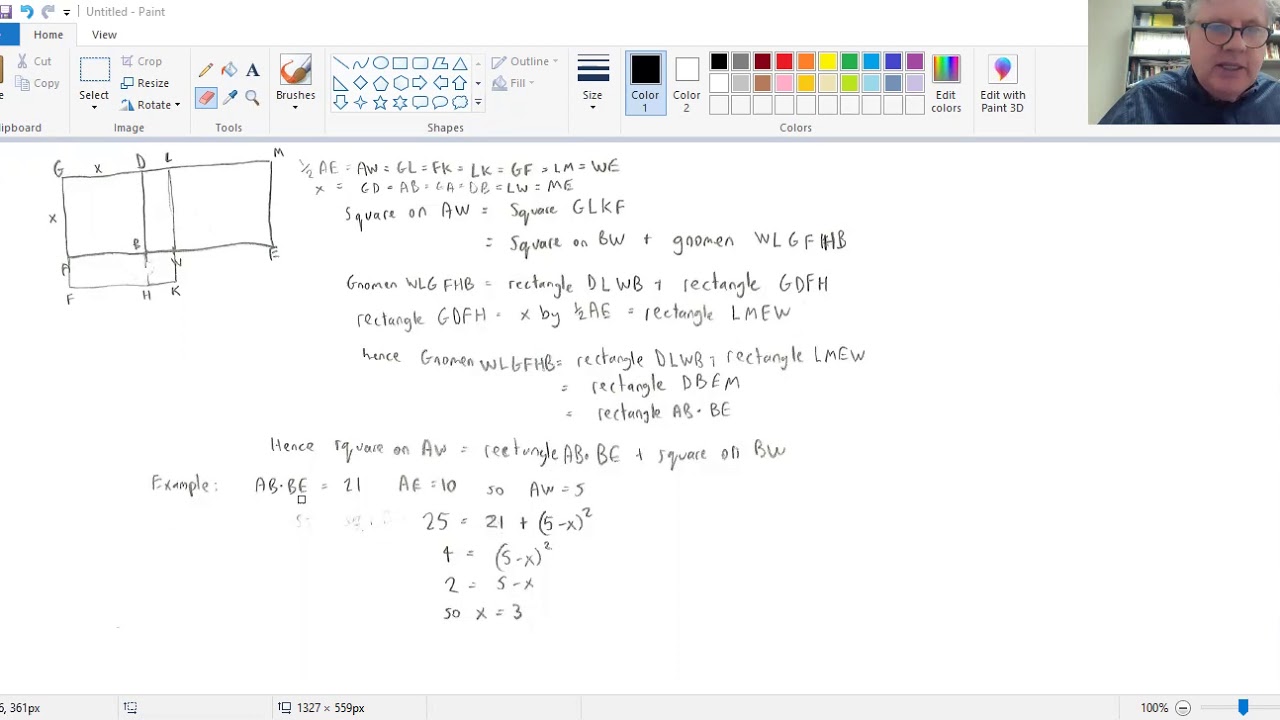 Untitled - Paint
Home View
Cut
Copy
lipboard
Select
Crop
Resize
Rotate
Image
A
Tools
Brushes
Outline
Fill
Shapes
Size
Color 1
Color 2
Edit colors
Colors
Edit with Paint 3D
G x D L M
x
B
A W E
F H K
½ AE = AW = GL = FK = LK = GF = LM = WE
x = GD = AB = GA = DB = LW = ME
Square on AW = Square GLKF
= Square on BW + gnomen WLGFHB
Gnomen WLGFHB = rectangle DLWB + rectangle GDFH
rectangle GDFH = x by ½AE = rectangle LMEW
hence Gnomen WLGFHB = rectangle DLWB + rectangle LMEW
= rectangle DBEM
= rectangle AB·BE
Hence square on AW = rectangle AB·BE + square on BW
Example: AB·BE = 21 AE = 10 so AW = 5
25 = 21 + (5-x)²
4 = (5-x)²
2 = 5-x
so x = 3
6, 361px
1327 × 559px
100%